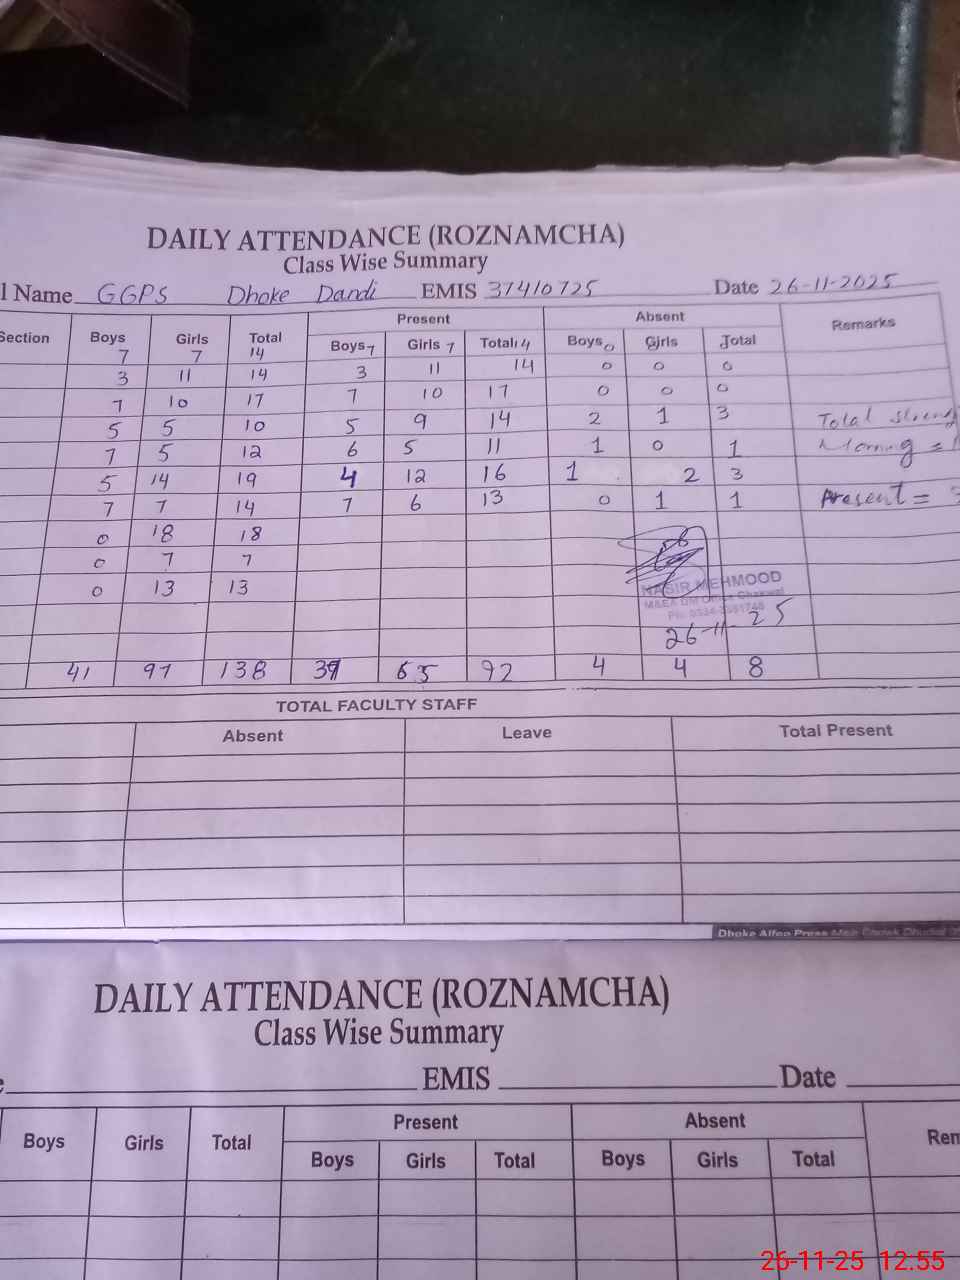 DAILY ATTENDANCE (ROZNAMCHA)
Class Wise Summary
l Name GGPS Dhoke Dandi EMIS 37410725 Date 26-11-2025
Section Boys Girls Total Present Absent Remarks
Boys Girls Total Boys Girls Total
7 7 14 7 7 14 0
3 11 14 3 11 14 0 0 0
7 10 17 7 10 17 0 0 0
5 5 10 5 9 14 2 1 3 Total
7 5 12 6 5 11 1 0 1
5 14 19 4 12 16 1 2 3
7 7 14 7 6 13 0 1 1 Present =
0 18 18
0 7 7
0 13 13
NASIR MEHMOOD
M&EA DM Office Chakwal
26-11-25
41 97 138 39 63 92 4 4 8
TOTAL FACULTY STAFF
Absent Leave Total Present
DAILY ATTENDANCE (ROZNAMCHA)
Class Wise Summary
EMIS Date
Boys Girls Total Present Absent Rem
Boys Girls Total Boys Girls Total
26-11-25 12.55